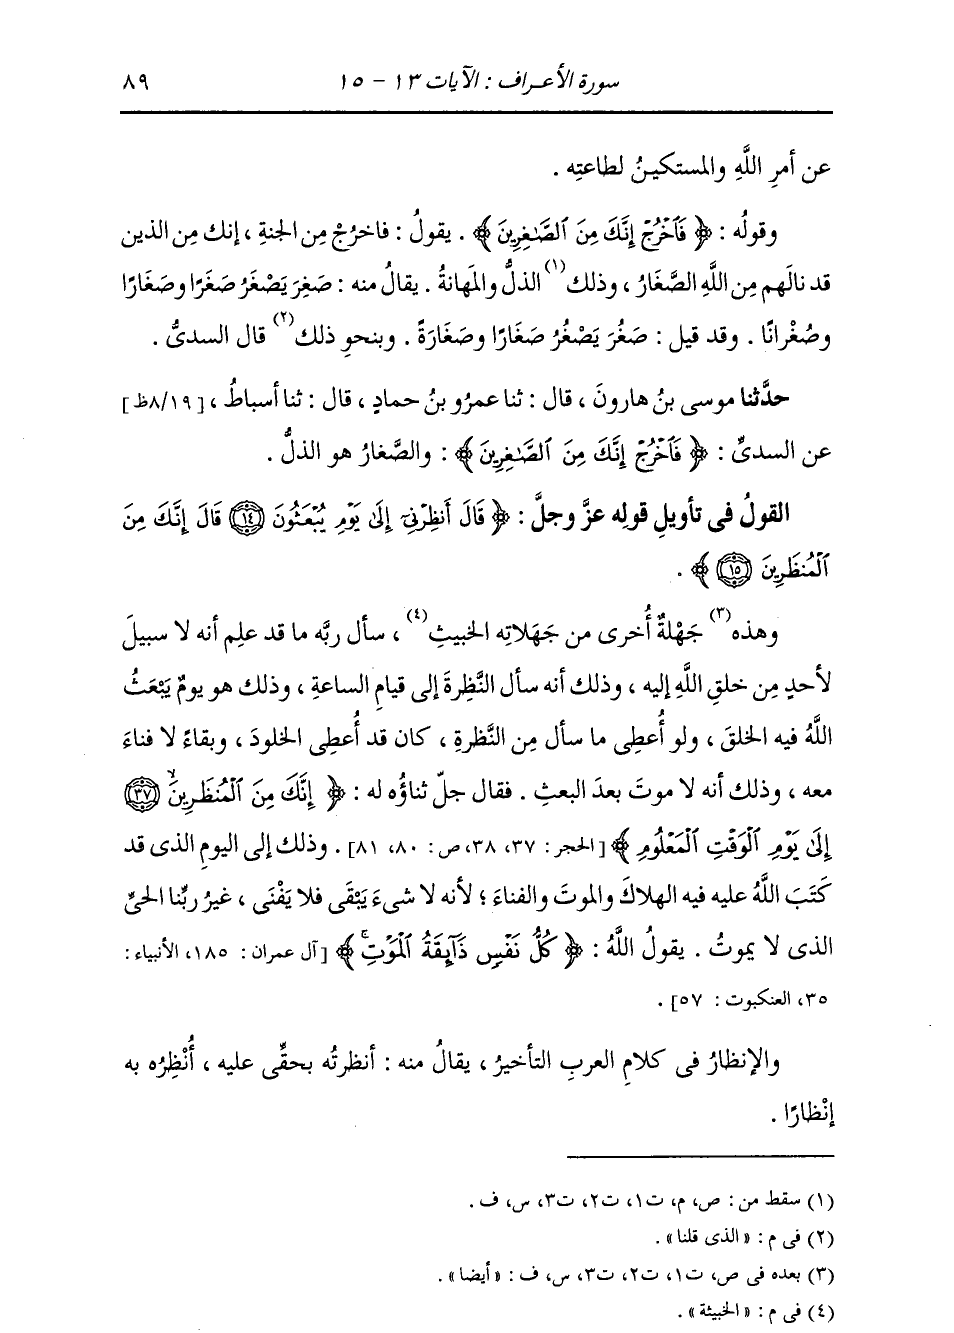 سورة الأعراف : الآيات ١٣ - ١٥ ٨٩
عن أمرِ اللَّهِ والمستكينُ لطاعتِه .
وقولُه : ﴿ فَٱخْرُجْ إِنَّكَ مِنَ ٱلصَّٰغِرِينَ ﴾ . يقولُ : فاخرُجْ مِن الجنةِ ، إنك مِن الذين
قد نالَهم مِن اللَّهِ الصَّغَارُ ، وذلك(١) الذلُّ والمَهانةُ . يقالُ منه : صَغِرَ يَصْغَرُ صَغَرًا وصَغَارًا
وصُغْرانًا . وقد قيل : صَغُرَ يَصْغُرُ صَغَارًا وصَغَارَةً . وبنحوِ ذلك(٢) قال السدىُّ .
حدَّثنا موسى بنُ هارونَ ، قال : ثنا عمرُو بنُ حمادٍ ، قال : ثنا أسباطُ ، [٨/١٩ظ]
عن السدىِّ : ﴿ فَٱخْرُجْ إِنَّكَ مِنَ ٱلصَّٰغِرِينَ ﴾ : والصَّغارُ هو الذلُّ .
القولُ فى تأويلِ قولِه عزَّ وجلَّ : ﴿ قَالَ أَنظِرْنِىٓ إِلَىٰ يَوْمِ يُبْعَثُونَ ١٤ قَالَ إِنَّكَ مِنَ
ٱلْمُنظَرِينَ ١٥ ﴾ .
وهذه(٣) جَهْلةٌ أُخرى من جَهَلاتِه الخبيثِ(٤) ، سأل ربَّه ما قد علِم أنه لا سبيلَ
لأحدٍ مِن خلقِ اللَّهِ إليه ، وذلك أنه سأل النَّظِرةَ إلى قيامِ الساعةِ ، وذلك هو يومٌ يَبْعَثُ
اللَّهُ فيه الخلقَ ، ولو أُعطِى ما سأل مِن النَّظرةِ ، كان قد أُعطِى الخلودَ ، وبقاءً لا فناءَ
معه ، وذلك أنه لا موتَ بعدَ البعثِ . فقال جلّ ثناؤُه له : ﴿ إِنَّكَ مِنَ ٱلْمُنظَرِينَ ٣٧
إِلَىٰ يَوْمِ ٱلْوَقْتِ ٱلْمَعْلُومِ ﴾ [الحجر : ٣٧، ٣٨، ص : ٨٠، ٨١] . وذلك إلى اليومِ الذى قد
كَتَبَ اللَّهُ عليه فيه الهلاكَ والموتَ والفناءَ ؛ لأنه لا شىءَ يَبْقَى فلا يَفْنَى ، غيرُ ربِّنا الحىِّ
الذى لا يموتُ . يقولُ اللَّهُ : ﴿ كُلُّ نَفْسٍ ذَآئِقَةُ ٱلْمَوْتِ ﴾ [آل عمران : ١٨٥، الأنبياء :
٣٥، العنكبوت : ٥٧] .
والإنظارُ فى كلامِ العربِ التأخيرُ ، يقالُ منه : أنظرتُه بحقِّى عليه ، أُنْظِرُه به
إنْظارًا .
(١) سقط من : ص، م، ت١، ت٢، ت٣، س، ف .
(٢) فى م : «الذى قلنا» .
(٣) بعده فى ص، ت١، ت٢، ت٣، س، ف : «أيضا» .
(٤) فى م : «الخبيثة» .